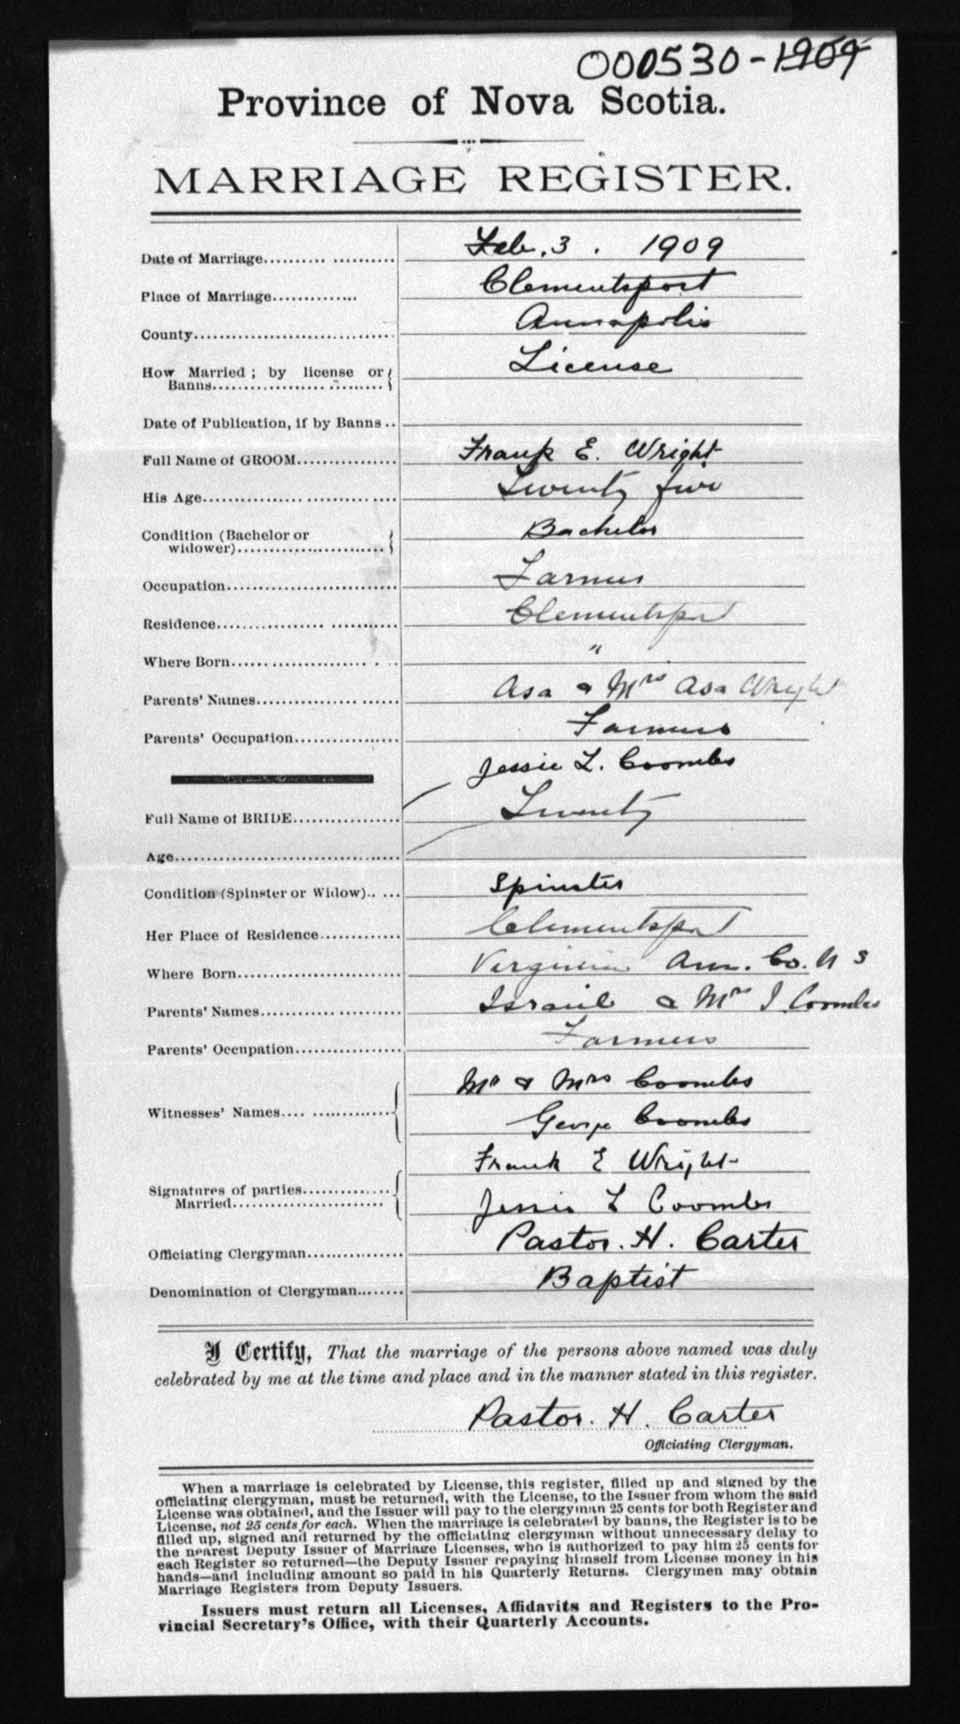 000530-1909
Province of Nova Scotia.
MARRIAGE REGISTER.
Date of Marriage Feb. 3. 1909
Place of Marriage Clementsport
County Annapolis
How Married; by license or License
Banns
Date of Publication, if by Banns
Full Name of GROOM Frank E. Wright
His Age Twenty five
Condition (Bachelor or Bachelor
widower)
Occupation Farmer
Residence Clementsport
Where Born "
Parents' Names Asa & Mrs Asa Wright
Parents' Occupation Farmers
Jessie L. Coombs
Full Name of BRIDE Twenty
Age
Condition (Spinster or Widow) Spinster
Her Place of Residence Clementsport
Where Born Virginia Ann. Co. N S
Parents' Names Israel & Mrs I Coombs
Parents' Occupation Farmers
Mr & Mrs Coombs
Witnesses' Names
George Coombs
Frank E Wright
Signatures of parties
Married Jessie L Coombs
Officiating Clergyman Pastor. H. Carter
Denomination of Clergyman Baptist
I Certify, That the marriage of the persons above named was duly
celebrated by me at the time and place and in the manner stated in this register.
Pastor. H. Carter
Officiating Clergyman.
When a marriage is celebrated by License, this register, filled up and signed by the
officiating clergyman, must be returned, with the License, to the Issuer from whom the said
License was obtained, and the Issuer will pay to the clergyman 25 cents for both Register and
License, not 25 cents for each. When the marriage is celebrated by banns, the Register is to be
filled up, signed and returned by the officiating clergyman without unnecessary delay to
the nearest Deputy Issuer of Marriage Licenses, who is authorized to pay him 25 cents for
each Register so returned—the Deputy Issuer repaying himself from License money in his
hands—and including amount so paid in his Quarterly Returns. Clergymen may obtain
Marriage Registers from Deputy Issuers.
Issuers must return all Licenses, Affidavits and Registers to the Pro-
vincial Secretary's Office, with their Quarterly Accounts.